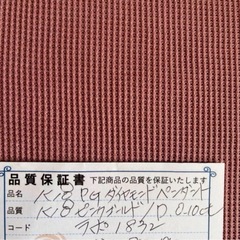 品質保証書 下記商品の品質を保証いたします
品名 K18PGダイヤモンドペンダント
品質 K18ピンクゴールド/D.0.10ct
コード ラポ1832